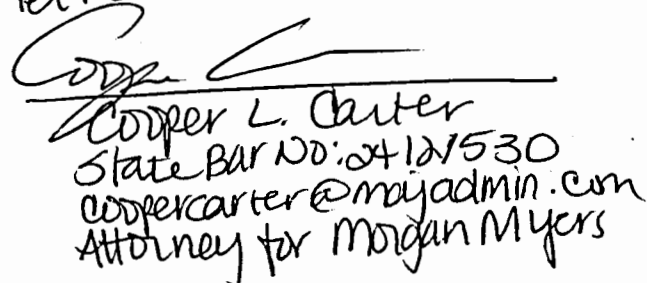 Cooper L. Carter
State Bar No: 24121530
coopercarter@mayadmin.com
Attorney for Morgan Myers